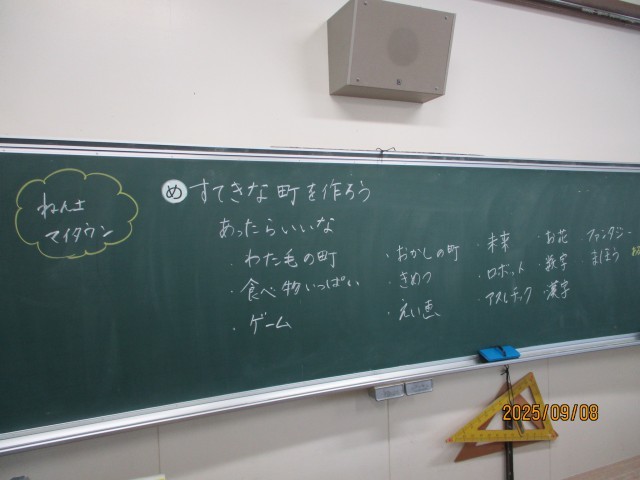 ねん土
マイタウン
め すてきな町を作ろう
あったらいいな
・わた毛の町
・食べ物いっぱい
・ゲーム
・おかしの町
・きめつ
・えい画
・未来
・ロボット
・アスレチック
・お花
・数字
・漢字
ファンタジー
・まほう
2025/09/08